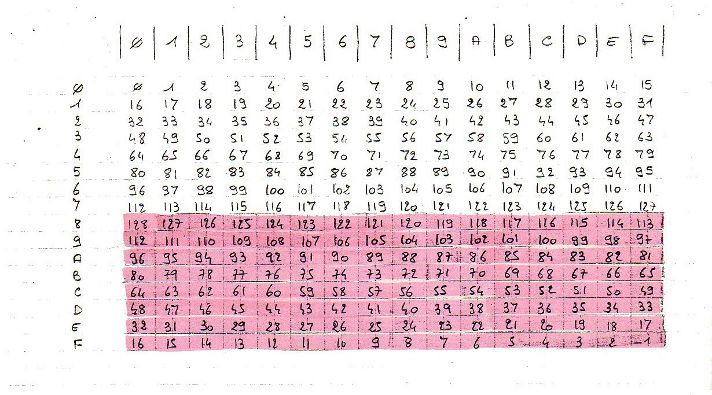 | Ø | 1 | 2 | 3 | 4 | 5 | 6 | 7 | 8 | 9 | A | B | C | D | E | F |
Ø 0 1 2 3 4 5 6 7 8 9 10 11 12 13 14 15
1 16 17 18 19 20 21 22 23 24 25 26 27 28 29 30 31
2 32 33 34 35 36 37 38 39 40 41 42 43 44 45 46 47
3 48 49 50 51 52 53 54 55 56 57 58 59 60 61 62 63
4 64 65 66 67 68 69 70 71 72 73 74 75 76 77 78 79
5 80 81 82 83 84 85 86 87 88 89 90 91 92 93 94 95
6 96 97 98 99 100 101 102 103 104 105 106 107 108 109 110 111
7 112 113 114 115 116 117 118 119 120 121 122 123 124 125 126 127
8 128 127 126 125 124 123 122 121 120 119 118 117 116 115 114 113
9 112 111 110 109 108 107 106 105 104 103 102 101 100 99 98 97
A 96 95 94 93 92 91 90 89 88 87 86 85 84 83 82 81
B 80 79 78 77 76 75 74 73 72 71 70 69 68 67 66 65
C 64 63 62 61 60 59 58 57 56 55 54 53 52 51 50 49
D 48 47 46 45 44 43 42 41 40 39 38 37 36 35 34 33
E 32 31 30 29 28 27 26 25 24 23 22 21 20 19 18 17
F 16 15 14 13 12 11 10 9 8 7 6 5 4 3 2 1